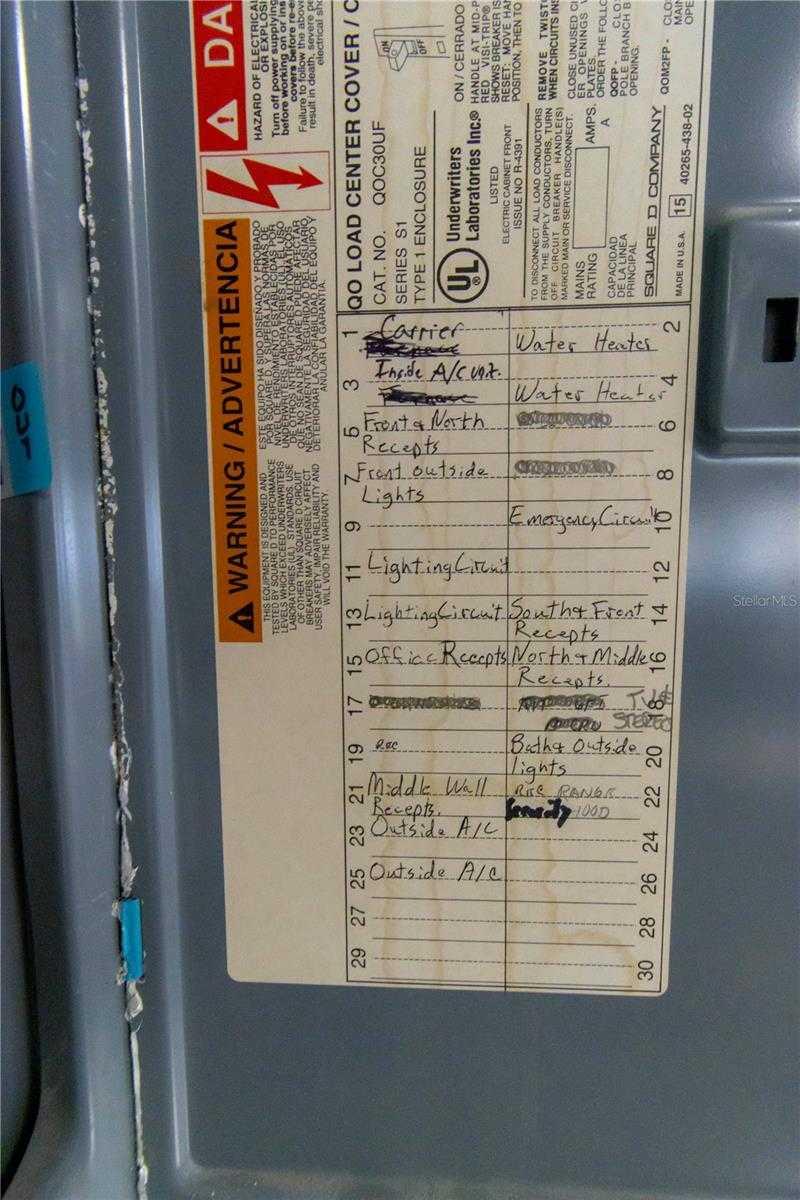 DA
HAZARD OF ELECTRICAL
OR EXPLOSI
Turn off power supplying
before working on or ins
covers before re-e
Failure to follow the above
result in death, severe pe
electrical sho
WARNING / ADVERTENCIA
THIS EQUIPMENT IS DESIGNED AND
TESTED BY SQUARE D TO PERFORMANCE
LEVELS WHICH EXCEED UNDERWRITERS
LABORATORIES (UL) STANDARDS. USE
OF OTHER THAN SQUARE D CIRCUIT
BREAKERS MAY ADVERSELY AFFECT
USER SAFETY, IMPAIR RELIABILITY AND
WILL VOID THE WARRANTY.
ESTE EQUIPO HA SIDO DISEÑADO Y PROBADO
POR SQUARE D Y SUPERA LAS NORMAS DE
NIVEL DE RENDIMIENTO ESTABLECIDAS POR
UNDERWRITERS LABORATORIES (UL). EL USO
DE OTROS INTERRUPTORES AUTOMATICOS
QUE NO SEAN DE SQUARE D PUEDE AFECTAR
NEGATIVAMENTE LA SEGURIDAD DEL USUARIO,
DETERIORAR LA CONFIABILIDAD DEL EQUIPO Y
ANULAR LA GARANTIA.
QO LOAD CENTER COVER / C
CAT. NO. QOC30UF
SERIES S1
TYPE 1 ENCLOSURE
ON
OFF
ON / CERRADO
HANDLE AT MID-P
RED VISI-TRIP®
SHOWS BREAKER IS
RESET: MOVE HAN
POSITION, THEN TO
UL
Underwriters
Laboratories Inc.®
LISTED
ELECTRIC CABINET FRONT
ISSUE NO R-4391
REMOVE TWISTO
WHEN CIRCUITS INS
CLOSE UNUSED CI
ER OPENINGS
PLATES.
ORDER THE FOLLO
QOFP - CLO
POLE BRANCH B
OPENING.
QOM2FP - CLO
MAIN
OPE
TO DISCONNECT ALL LOAD CONDUCTORS
FROM THE SUPPLY CONDUCTORS, TURN
OFF CIRCUIT BREAKER HANDLE(S)
MARKED MAIN OR SERVICE DISCONNECT.
MAINS
RATING
AMPS.
A
CAPACIDAD
DE LA LINEA
PRINCIPAL
SQUARE D COMPANY
MADE IN U.S.A.
15
40265-438-02
OUT
1 Carrier
Water Heater 2
3 Inside A/C unit.
Water Heater 4
5 Front & North
Recepts
6
7 Front outside
Lights
8
9
Emergency Circuit 10
11 Lighting Circuit
12
13 Lighting Circuit
South & Front 14
Recepts
15 Office Recepts
North & Middle 16
Recepts.
17
TV &
STEREO
18
19 REC
Bath & Outside 20
lights
21 Middle Wall
Recepts.
REC RANGE 22
HOOD
23 Outside A/C
24
25 Outside A/C
26
27
28
29
30
StellarMLS